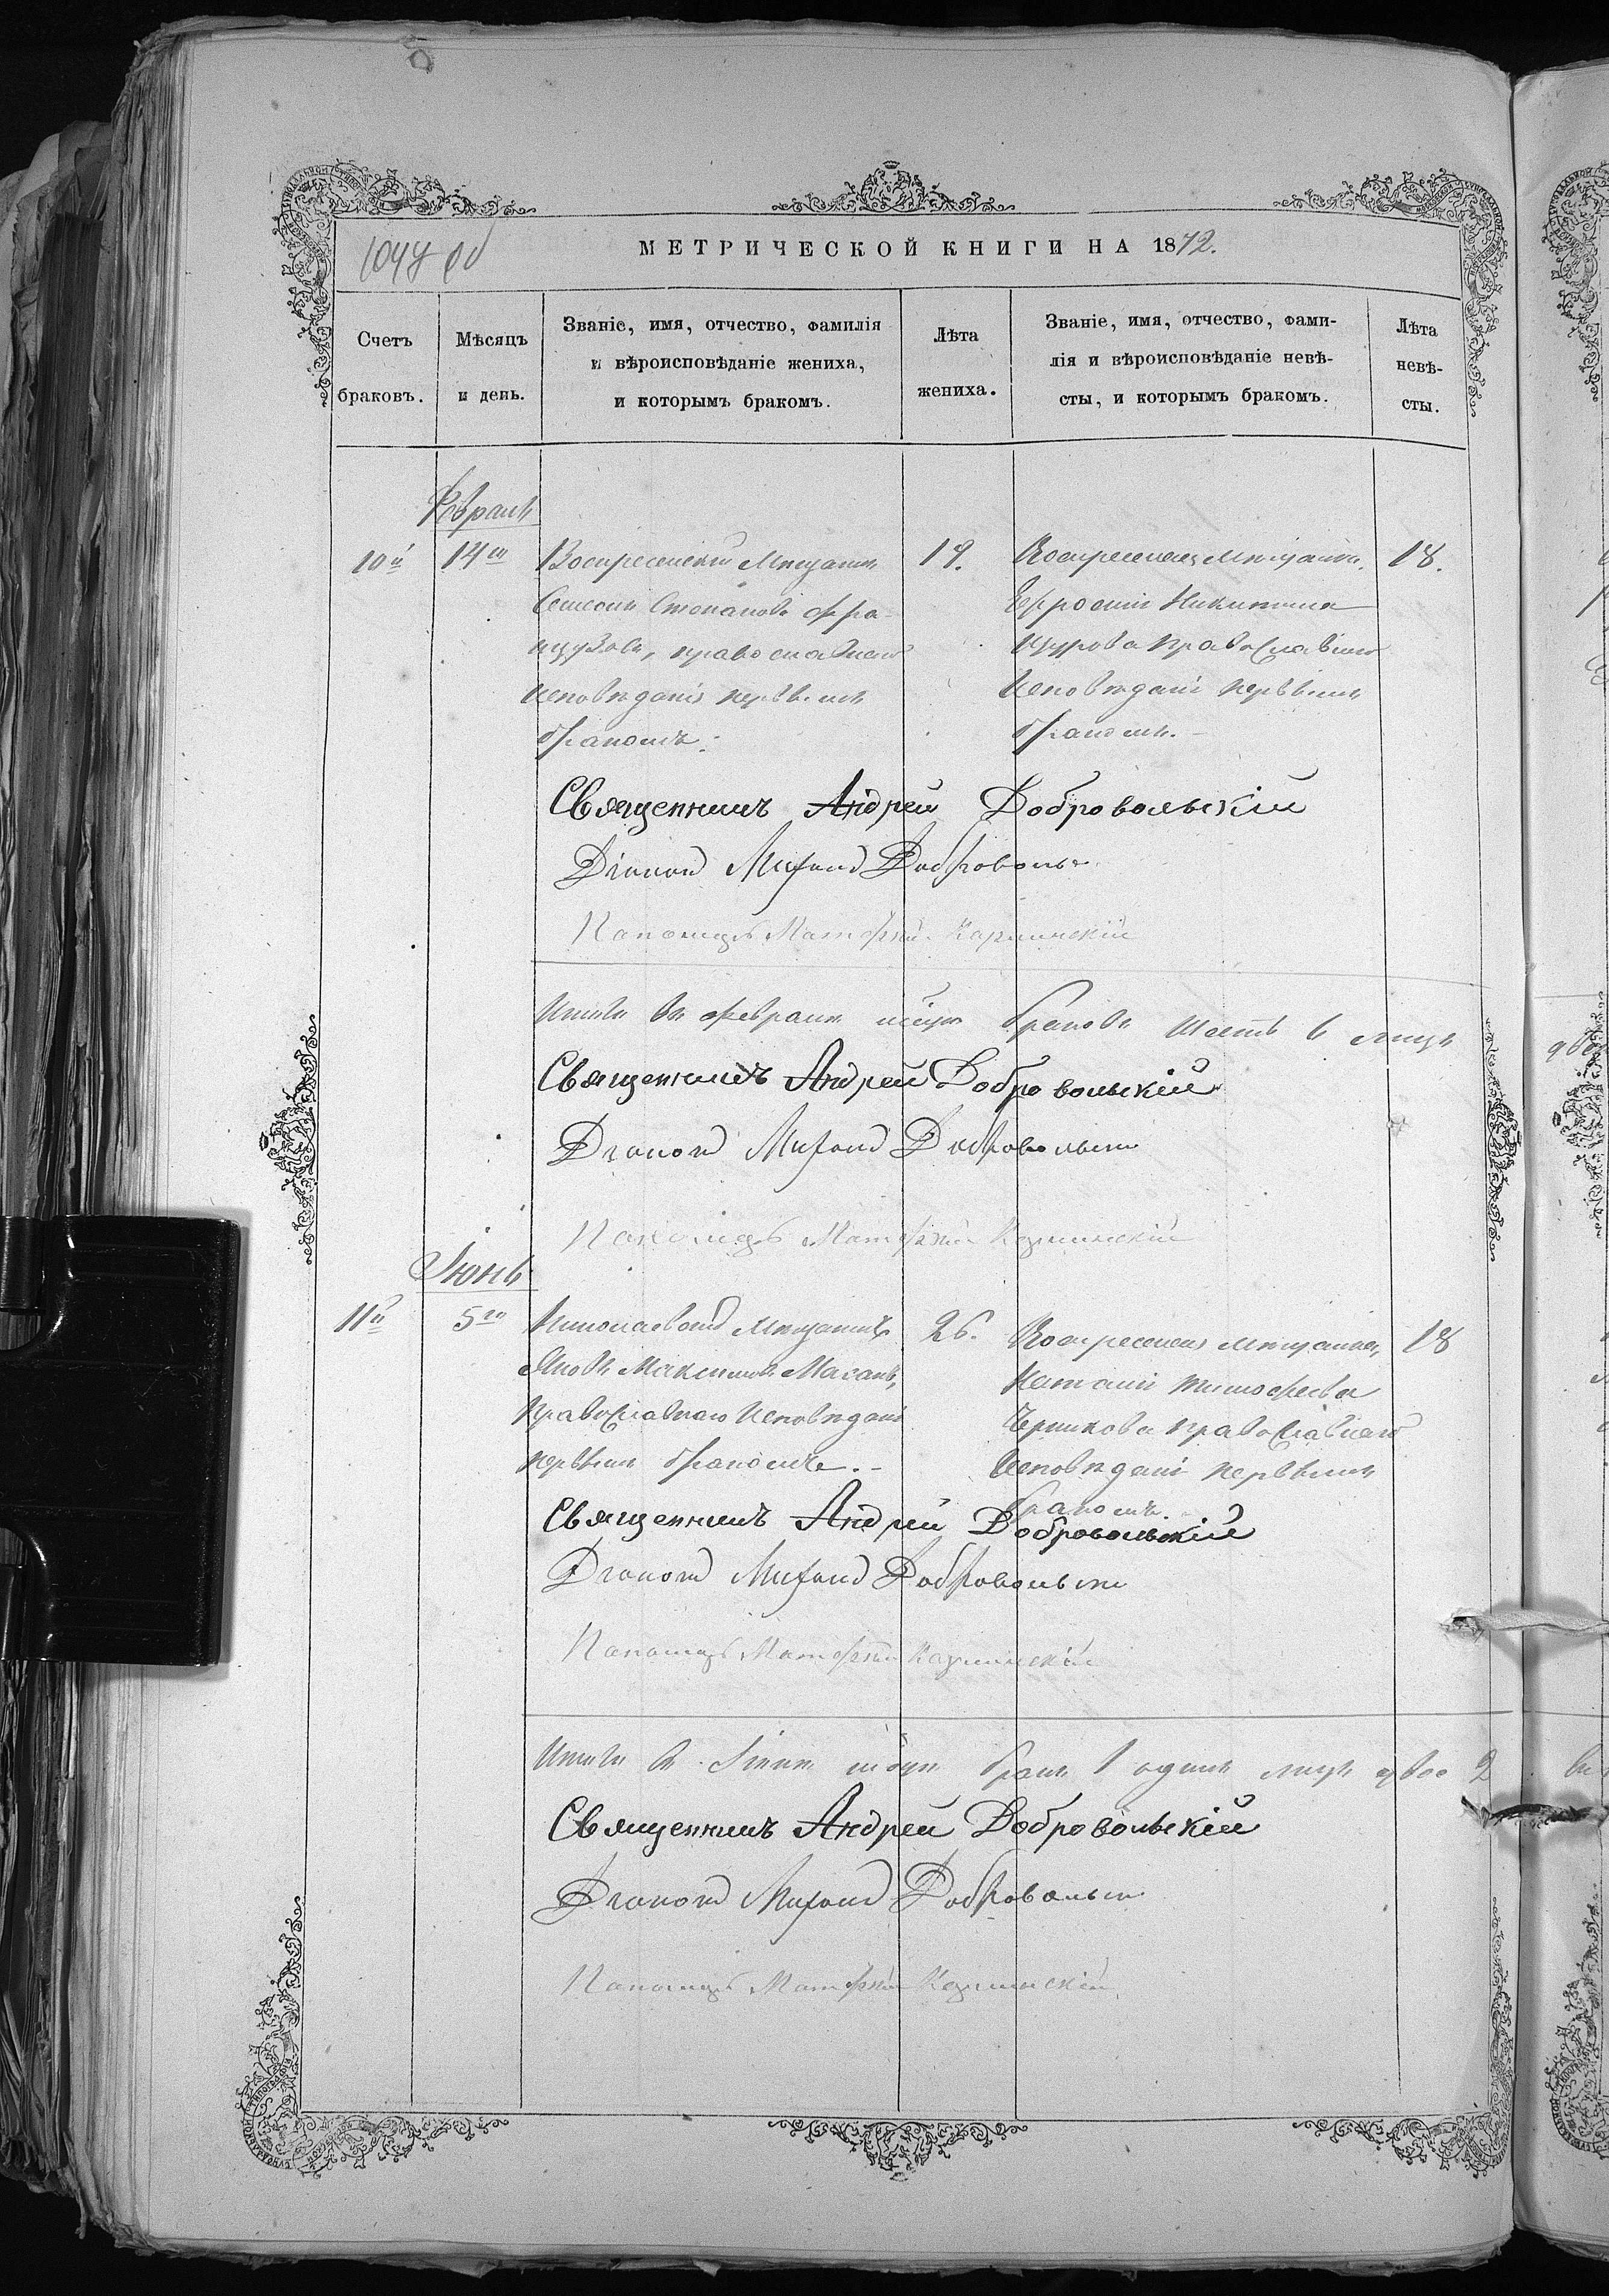 МЕТРИЧЕСКОЙ КНИГИ НА 1872.
Счетъ браковъ.
Мѣсяцъ и день.
Званіе, имя, отчество, фамилія
и вѣроисповѣданіе жениха,
и которымъ бракомъ.
Лѣта жениха.
Званіе, имя, отчество, фами-
лія и вѣроисповѣданіе невѣ-
сты, и которымъ бракомъ.
Лѣта невѣ-
сты.
Февраль
10й
14го
Воскресенскій Мещанинъ
Степановъ Фра-
нцузовъ, православнаго
Исповѣданія первымъ
бракомъ.
19.
Воскресенская мѣщанка
Ефросинія Никитина
Щурова Православнаго
Исповѣданія первымъ
бракомъ.
18.
Священникъ Андрей Добровольскій
Діаконъ Добровольск
Матфей
Итого въ Февралѣ мѣсяцѣ браковъ Шесть 6
Священникъ Андрей Добровольскій
Діаконъ Добровольскій
Матфей
Іюнь
11й
5го
Николаевскій Мещанинъ
Яковъ Максимовъ
Православнаго Исповѣданія
первымъ бракомъ.
26.
Воскресенская мещанка,
Наталія Тимофеева
Православнаго
Исповѣданія первымъ
бракомъ.
18
Священникъ Андрей Добровольскій
Діаконъ Добровольскій
Матфей
Итого въ Іюнѣ бракъ 1 одинъ лицъ двое 2
Священникъ Андрей Добровольскій
Діаконъ Добровольскій
Матфей